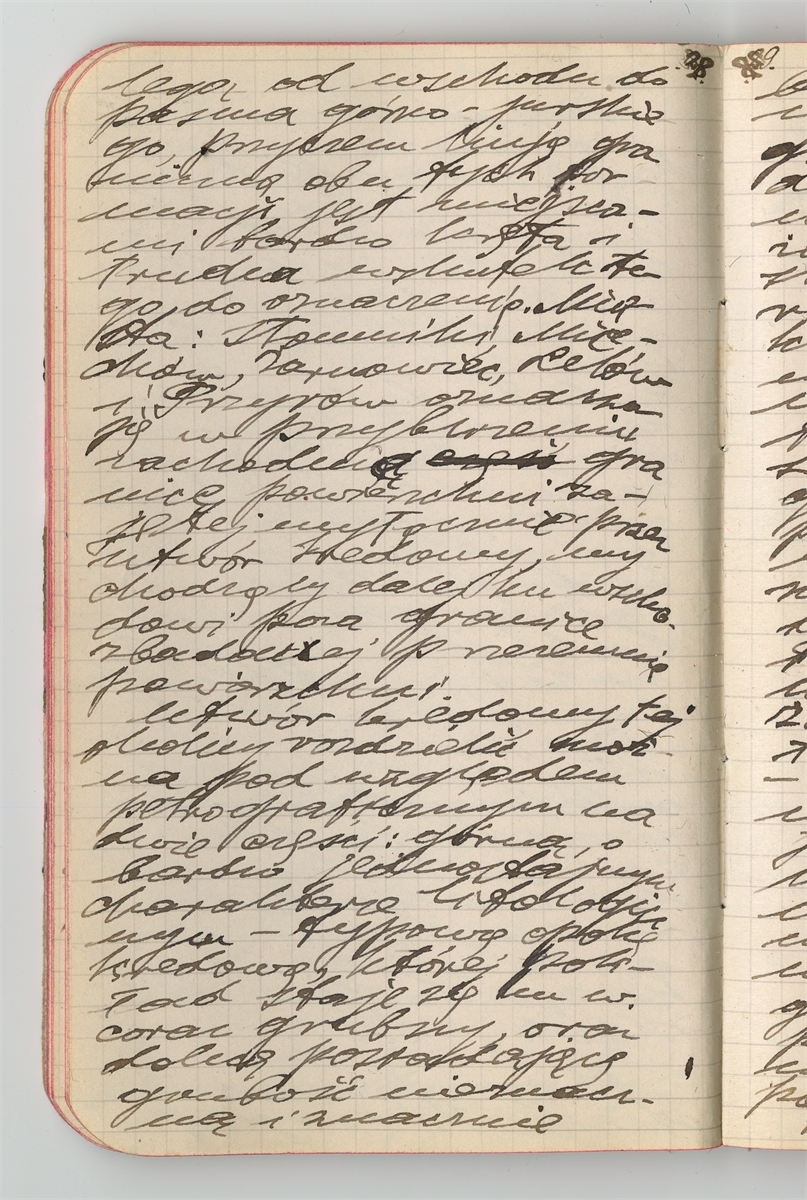 legą od wschodu do
pasma górno-jurskie
go, przyczem linją gra
niczną obu tych for
macji jest miejsca-
mi bardzo kręta i
trudna wskutek te-
go do oznaczenia. Mia
sta: Słomniki, Mie-
chów, Żarnowiec, Lelów
i Przyrów oznacza
ją w przybliżeniu
zachodnią gra
nicę powierzchni za-
jętej wyłącznie przez
utwór kredowy, wy
chodzący dalej ku wscho-
dowi poza granice
zbadanej przezemnie
powierzchni.
Utwór kredowy tej
okolicy rozdzielić moż-
na pod względem
petrograficznym na
dwie części: górną, o
bardzo jednostajnym
charakterze litologicz
nym - typową opokę
kredową, której pok-
ład staje się ku w.
coraz grubszy, oraz
dolną posiadającą
grubość nieznacz-
ną i znacznie